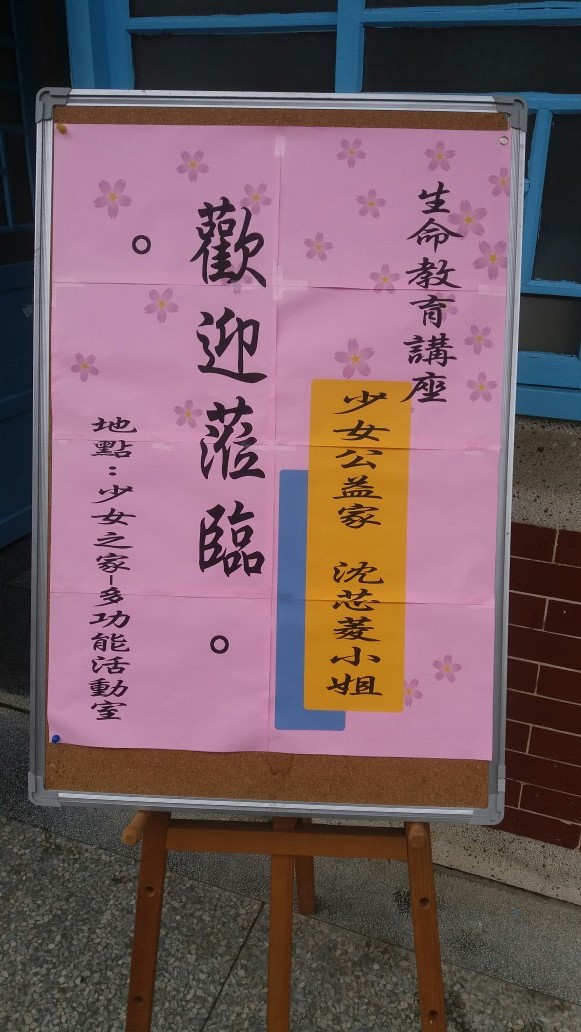 生命教育講座
少女公益家 沈芯菱小姐
歡迎蒞臨。
。
地點：少女之家-多功能活動室